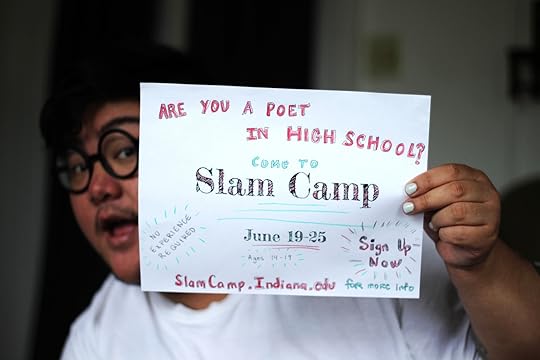 ARE YOU A POET
IN HIGH SCHOOL?
COME TO
Slam Camp
NO
EXPERIENCE
REQUIRED
June 19-25
Ages 14-19
Sign Up
Now
SlamCamp.Indiana.edu for more info